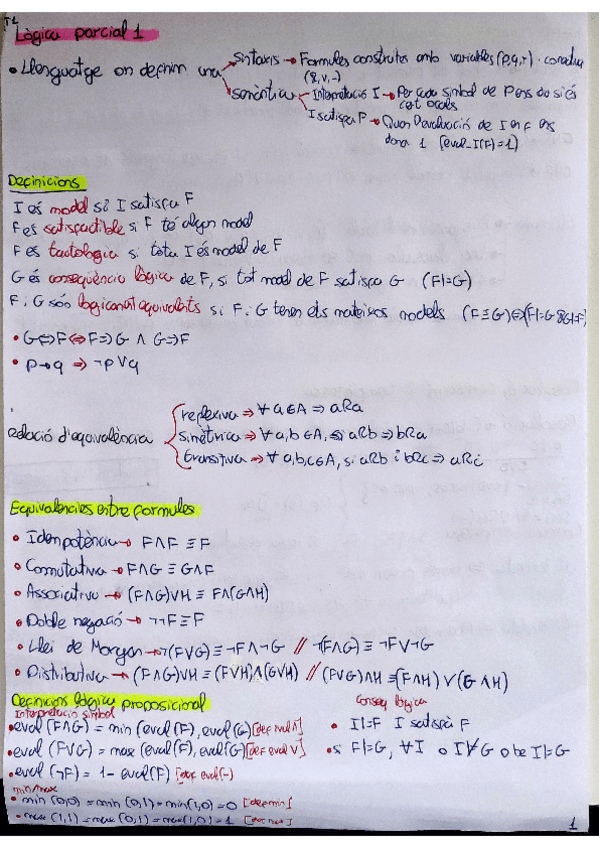 T1
Lògica parcial 1
• Llenguatge on definim una sintaxis → Formules construïdes amb variables (p,q,r) i
(&,v,¬)
semàntica → Interpretació I → Per cada símbol de P ens diu si és
cert o fals
I satisfà F → Quan l'evaluació de I en F ens
dona 1 (eval_I(F)=1)
Definicions
I és model si I satisfà F
F es satisfactible si F té algun model
F es tautologia si tota I és model de F
G és conseqüència lògica de F, si tot model de F satisfà G (F|=G)
F i G són logicament equivalents si F i G tenen els mateixos models (F≡G)⇔(F|=G & G|=F)
• G⇔F ⇔ F⇒G ∧ G⇒F
• p→q ⇒ ¬p∨q
Relació d'equivalència
reflexiva ⇒ ∀ a∈A ⇒ aRa
simètrica ⇒ ∀ a,b∈A, si aRb ⇒ bRa
transitiva ⇒ ∀ a,b,c∈A, si aRb i bRc ⇒ aRc
Equivalències entre formules
• Idempotència → F∧F ≡ F
• Commutativa → F∧G ≡ G∧F
• Associativa → (F∧G)∨H ≡ F∧(G∧H)
• Doble negació → ¬¬F≡F
• Llei de Morgan → ¬(F∨G) ≡ ¬F∧¬G // ¬(F∧G) ≡ ¬F∨¬G
• Distributiva → (F∧G)∨H ≡ (F∨H)∧(G∨H) // (F∨G)∧H ≡ (F∧H)∨(G∧H)
Definicions lògica proposicional
Interpretació símbol
• eval (F∧G) = min (eval(F), eval(G)) [def eval ∧]
• eval (F∨G) = max (eval(F), eval(G)) [def eval ∨]
• eval (¬F) = 1 - eval(F) [def eval(¬)]
min/max
• min (0,0) = min (0,1) = min(1,0) = 0 [def min]
• max (1,1) = max (0,1) = max(1,0) = 1 [def max]
Conseq lògica
• I|=F I satisfà F
• si F|=G, ∀I o I|≠G o be I|=G
1